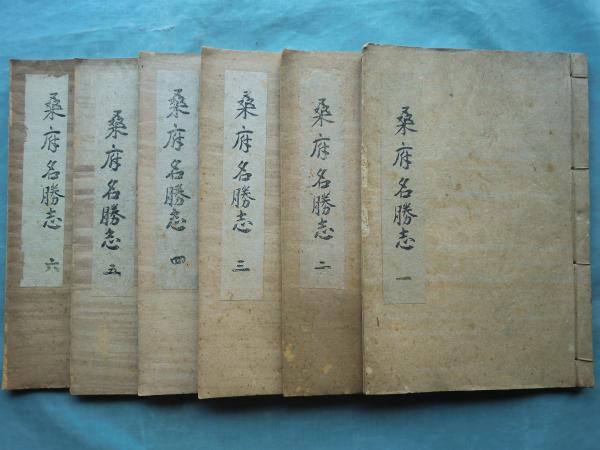 桑府名勝志 一
桑府名勝志 二
桑府名勝志 三
桑府名勝志 四
桑府名勝志 五
桑府名勝志 六